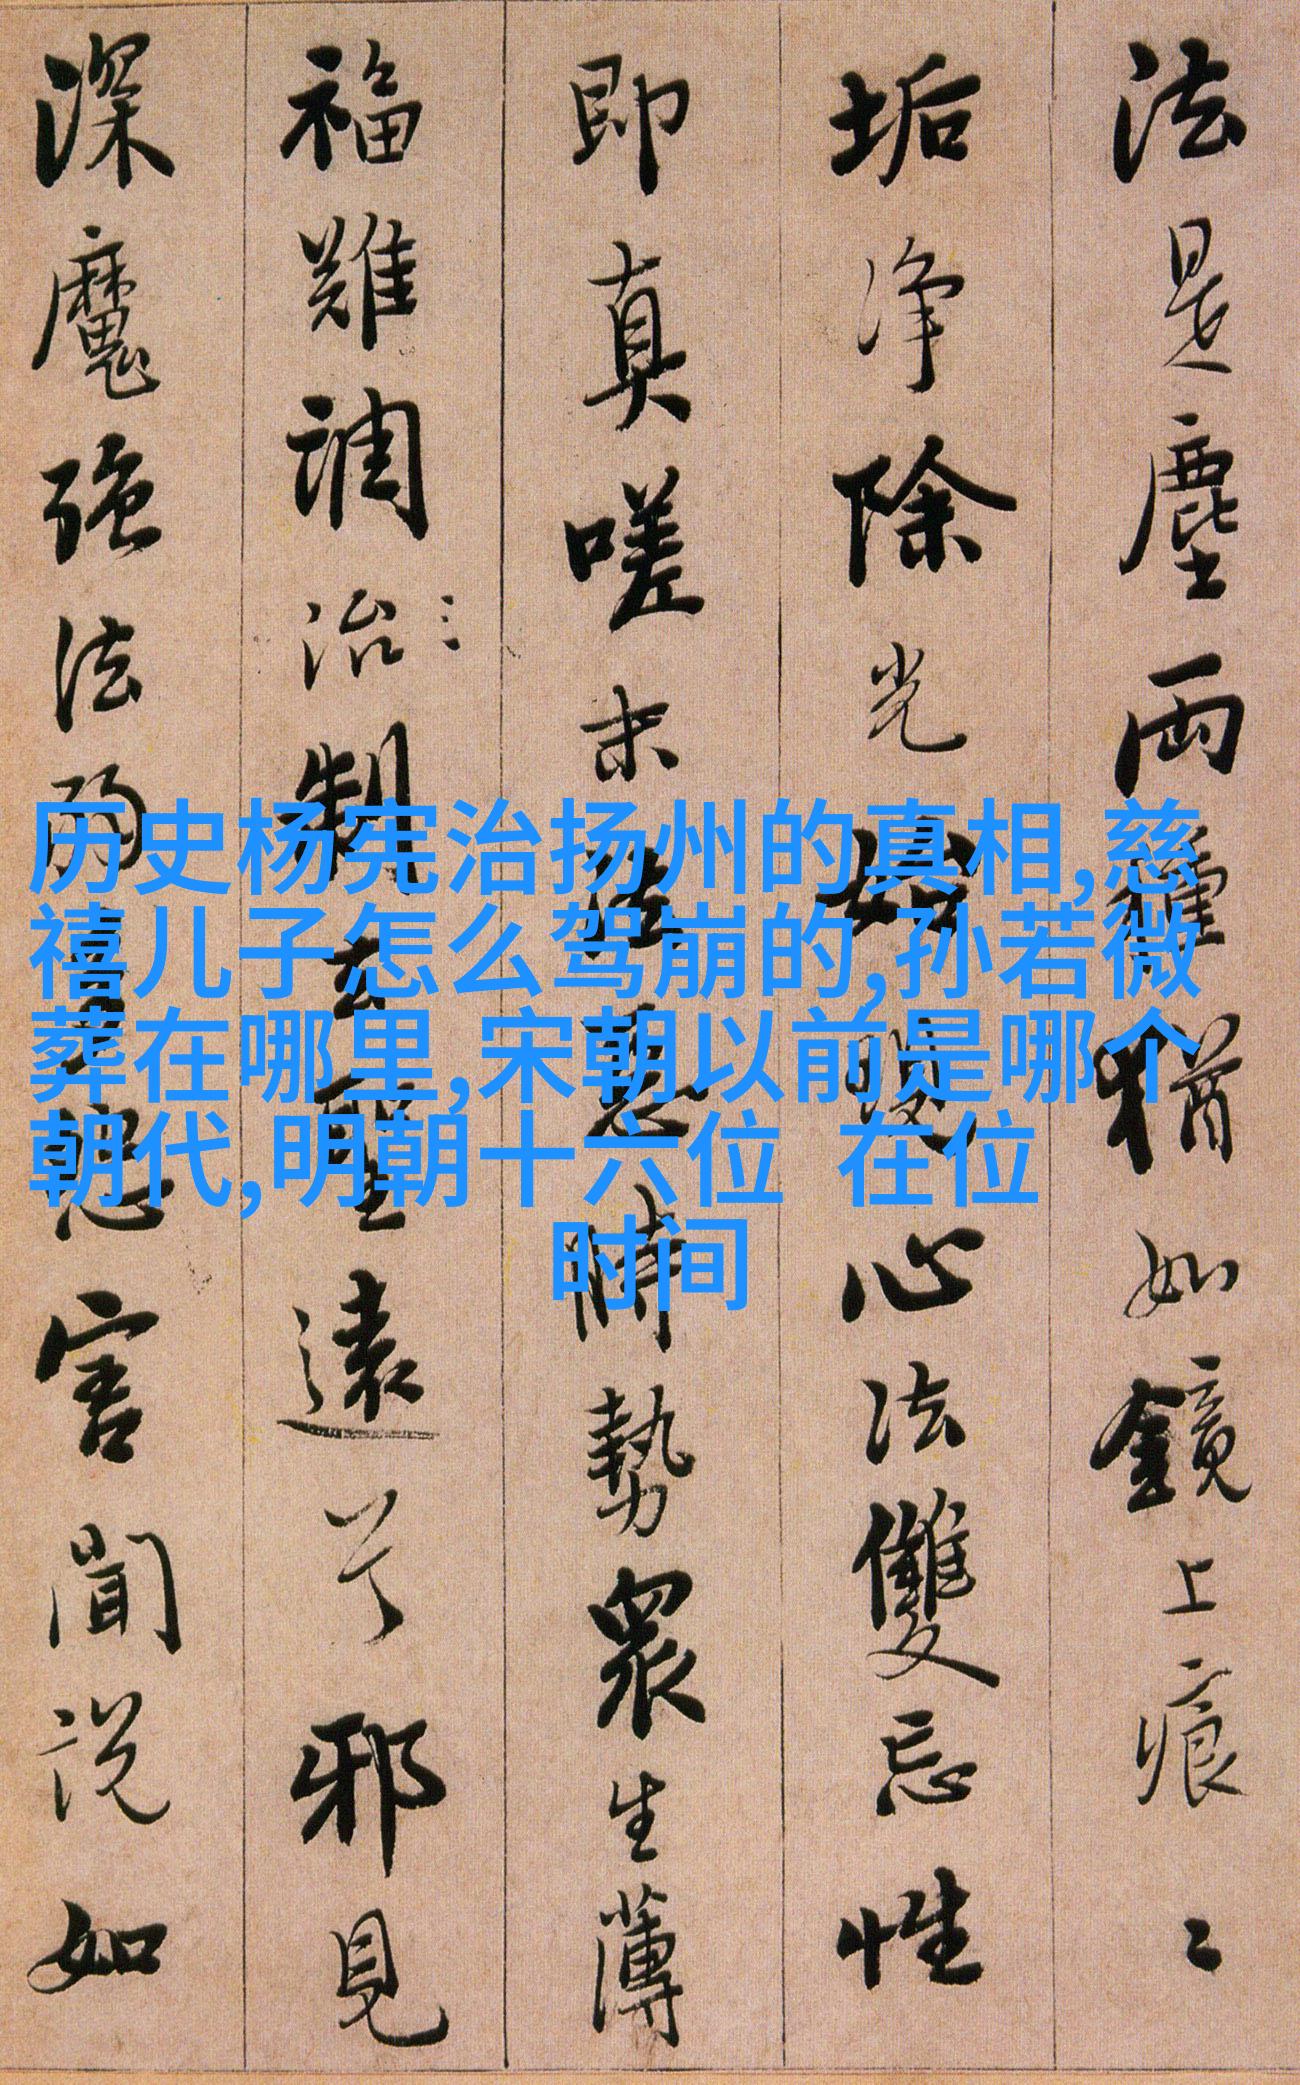 法是塵兩種猶如鏡上痕〻
垢淨除光始現心法雙忘性
即真嗟末法惡時勢衆生薄
福難調治制去聖遠兮邪見
深魔強法弱多怨害聞說如
历史杨宪治扬州的真相,慈
禧儿子怎么驾崩的,孙若微
葬在哪里,宋朝以前是哪个
朝代,明朝十六位 在位
时间